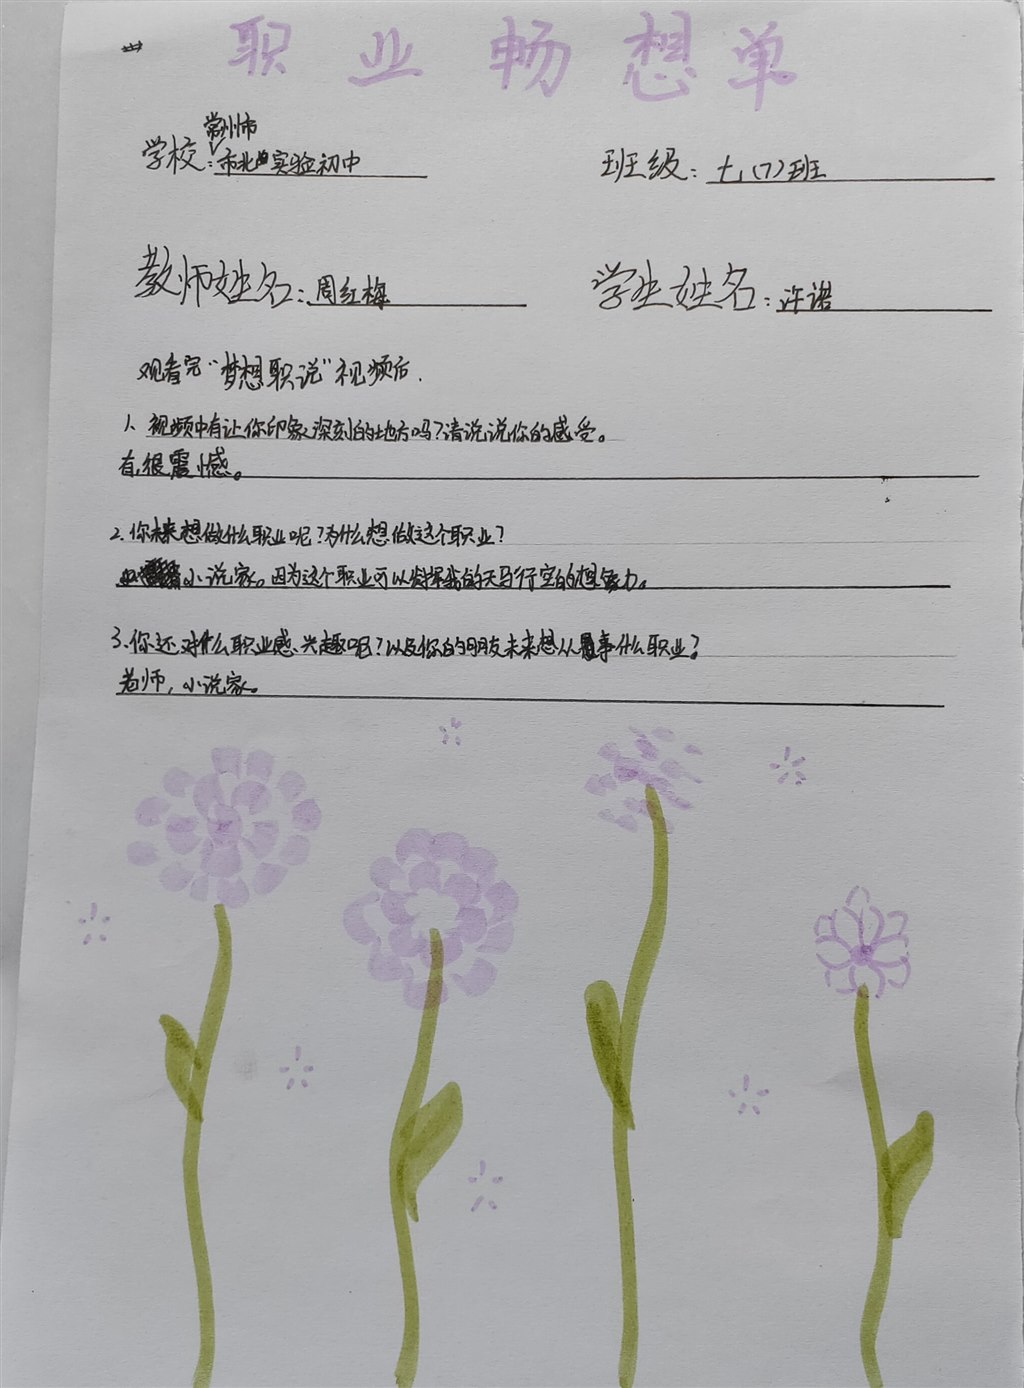 职业畅想单
学校：常州市市北实验初中 班级：七（7）班
教师姓名：周红梅 学生姓名：许诺
观看完“梦想职说”视频后．
1、视频中有让你印象深刻的地方吗？请说说你的感受。
有，很震憾。
2.你未来想做什么职业呢？为什么想做这个职业？
小说家。因为这个职业可以发挥我的天马行空的想象力。
3.你还对什么职业感兴趣呢？以及你的朋友未来想从事什么职业？
老师，小说家。